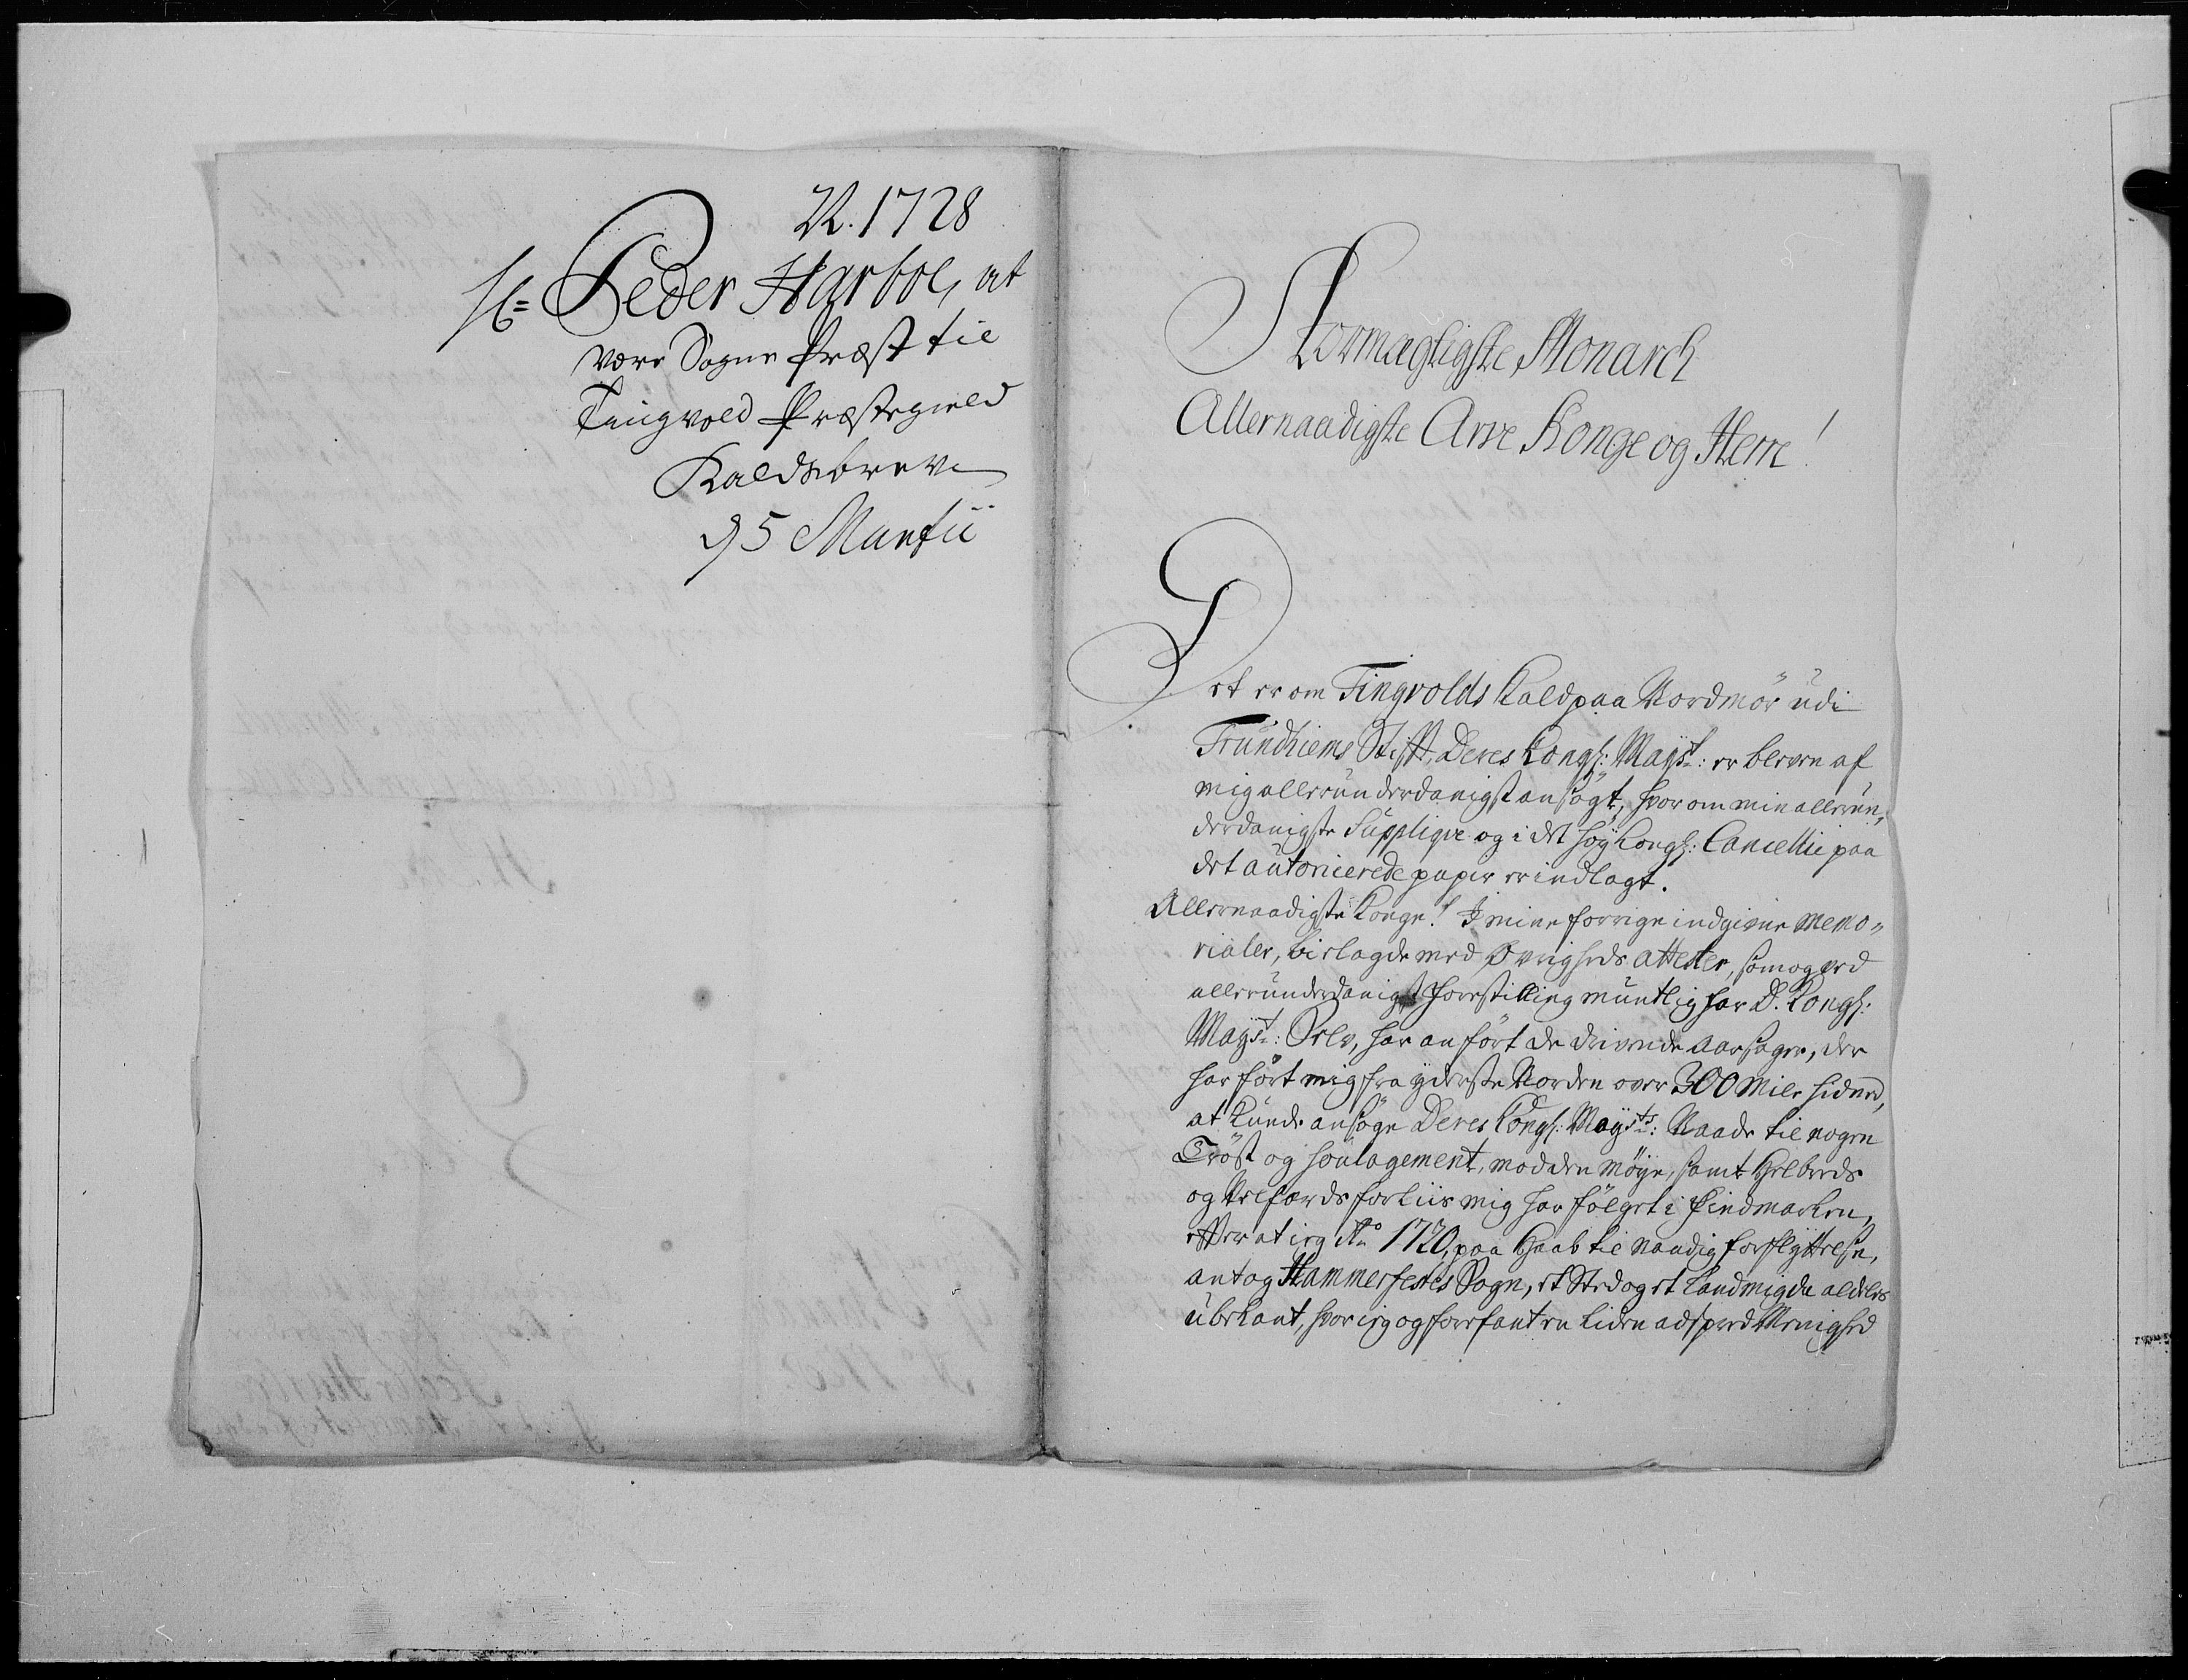 N. 1728
H= Peder Harboe, at
være Sogne Præst til
Tingvold Præstegield
Kaldsbrev
d 5 Martii
Stormægtigste Monarch
Allernaadigste Arve Konge og Herre!
Det er om Tingvolds Kald paa Nordmør udi
Trundhiems Stift, Deres Kongl: Mayst: er bleven af
mig allerunderdanigst ansögt, hvorom min allerun,
derdanigste Supplique og i det höy Kongl: Cancellie paa
det autoricerede papir er indlagt.
Allernaadigste Konge! I mine forrige indgivne memo„
rialer, bielagde med Øvrigheds attester, som og ved
allerunderdanigst forestilling muntlig for D. Kongl:
Mayst: Selv, har anfört de drivende aarsager, der
har fört mig fra yderste Norden over 300 Mile hidned,
at kunde ansöge Deres Kongl: Maysts: Naade til nogen
Tröst og soulagement, mod den möye, samt Helbreds
og Velfærds forliis mig har fölget i Findmarken,
efter at ieg Ao 1720, paa Haab til naadig forflyttelse,
antog Hammerfestes Sogn, et Sted og et Land mig da aldeles
ubekant, hvor ieg og forefant en liden adspred Menighed